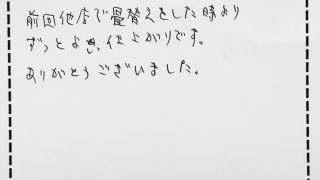 前回他店で畳替えをした時より
ずっとよき、仕上がりです。
ありがとうございました。